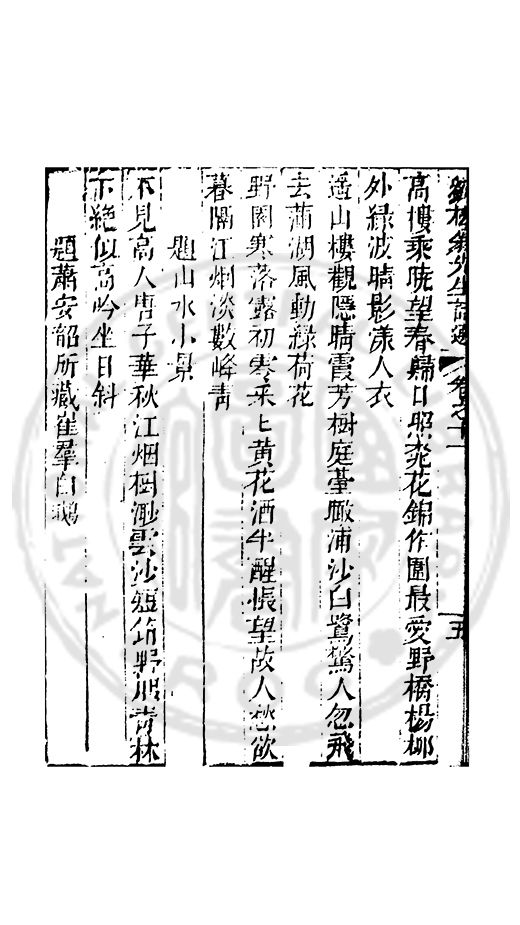 劉槎翁先生詩選 卷之十一 五
高樓乘曉望春歸日照桃花錦作圍最愛野橋楊柳
外綠波晴影漾人衣
遥山樓觀隱晴霞芳樹庭臺瞰浦沙白鷺驚人忽飛
去滿湖風動綠荷花
野園寒落露初寒采上黃花酒半醒悵望故人愁欲
暮隔江烟淡數峰青
題山水小景
不見高人唐子華秋江烟樹渺雲沙短笻野服青林
下絕似高吟坐日斜
題蕭安韶所藏崔羣白鵝